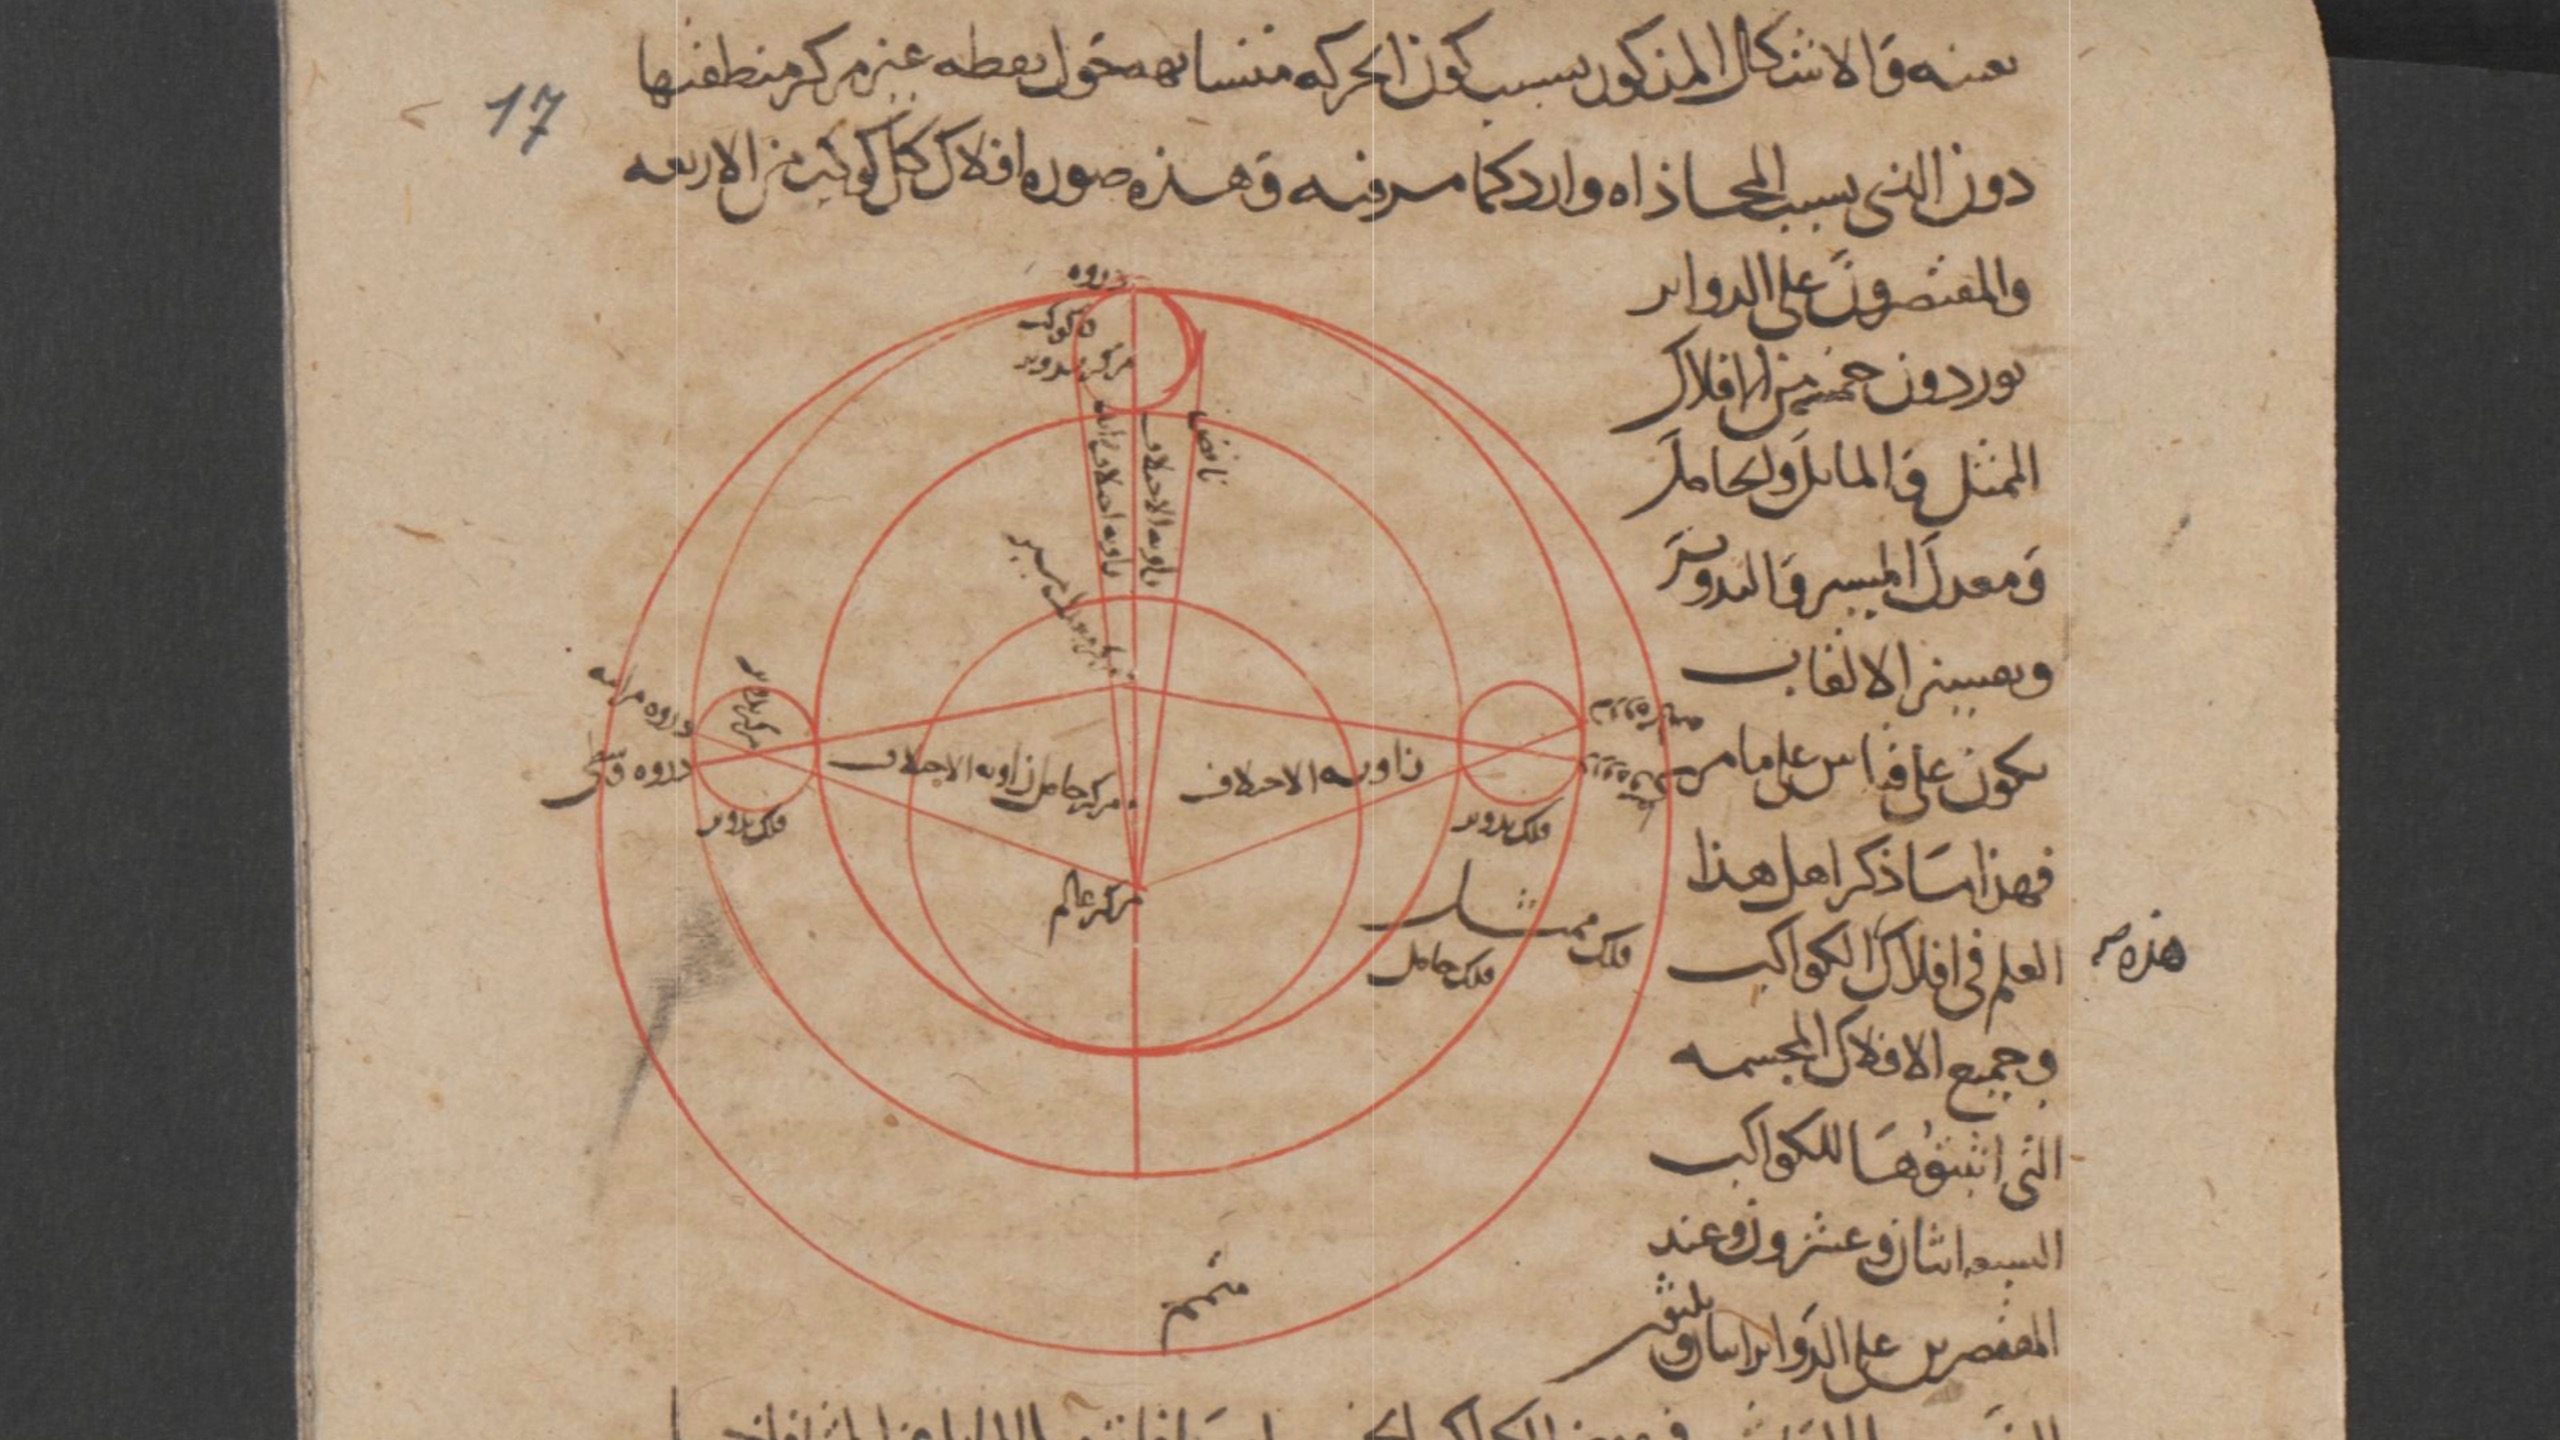 17
بعينه والاشكال المذكور بسبب كون الحركه متشابهه حول نقطه غير مركز منطقتها
دون الذى بسبب المحاذاه وارد كما مر فيه وهذه صوره افلاك كل كوكب من الاربعه
والمقتصرون على الدواير
يوردون خمسه من الافلاك
الممثل والمايل والحامل
ومعدل المسير والتدوير
وتعيين الالقاب
يكون على قياس على ما مر
فهذا ما ذكر اهل هذا
العلم فى افلاك الكواكب
هذه
وجميع الافلاك المجسمه
التى اثبتوها للكواكب
السبعه اثنان وعشرون وعند
المقتصرين على الدواير اربعه و
ذروه
كوكب
مركز تدوير
ناقص
زاويه الاختلاف
زاويه اختلاف زايد
مركز معدل مسير
ذروه مرئيه
مركز تدوير
ذروه وسطى
فلك تدوير
زاويه الاختلاف
مركز حامل
زاويه الاختلاف
ذروه مرئيه
ذروه وسطى
فلك تدوير
مركز عالم
فلك ممثل
فلك حامل
متمم